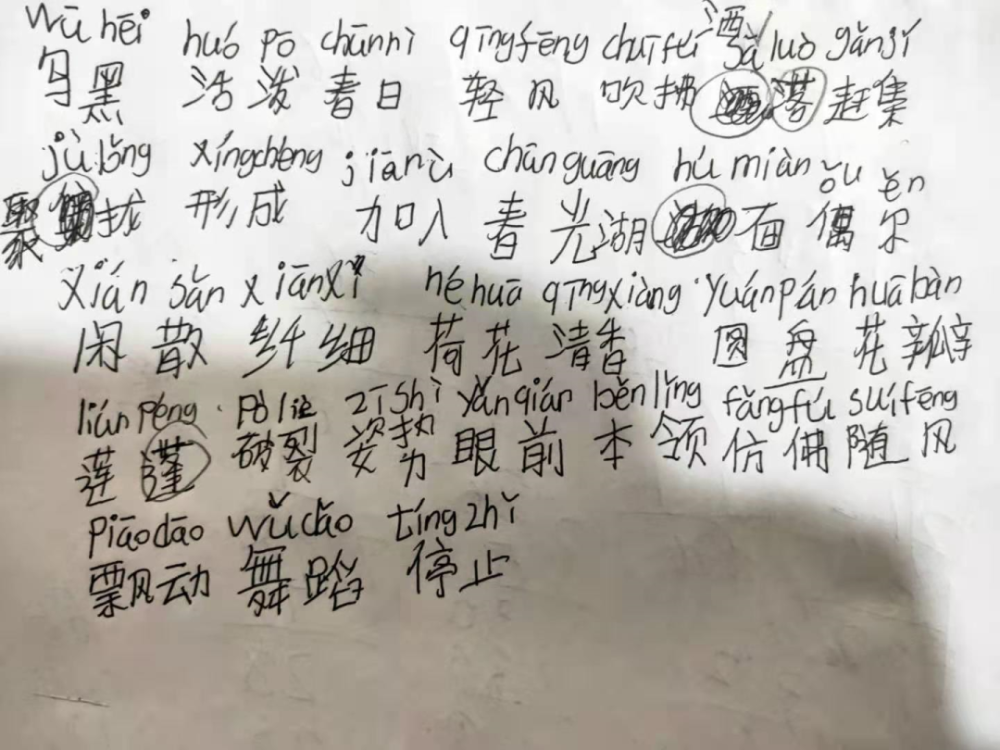 wū hēi huó pō chūnrì qīngfēng chuīfú sǎ luò gǎnjí
乌黑 活泼 春日 轻风 吹拂 洒落 赶集
jùlǒng xíngchéng jiārù chūnguāng húmiàn ǒu ěn
聚拢 形成 加入 春光 湖面 偶尔
xián sǎn xiānxì héhuā qīngxiāng yuánpán huābàn
闲散 纤细 荷花 清香 圆盘 花瓣
liánpéng pòliè zīshì yǎnqián běnlǐng fǎngfú suífēng
莲蓬 破裂 姿势 眼前 本领 仿佛 随风
piāodāo wǔdǎo tíngzhǐ
飘动 舞蹈 停止